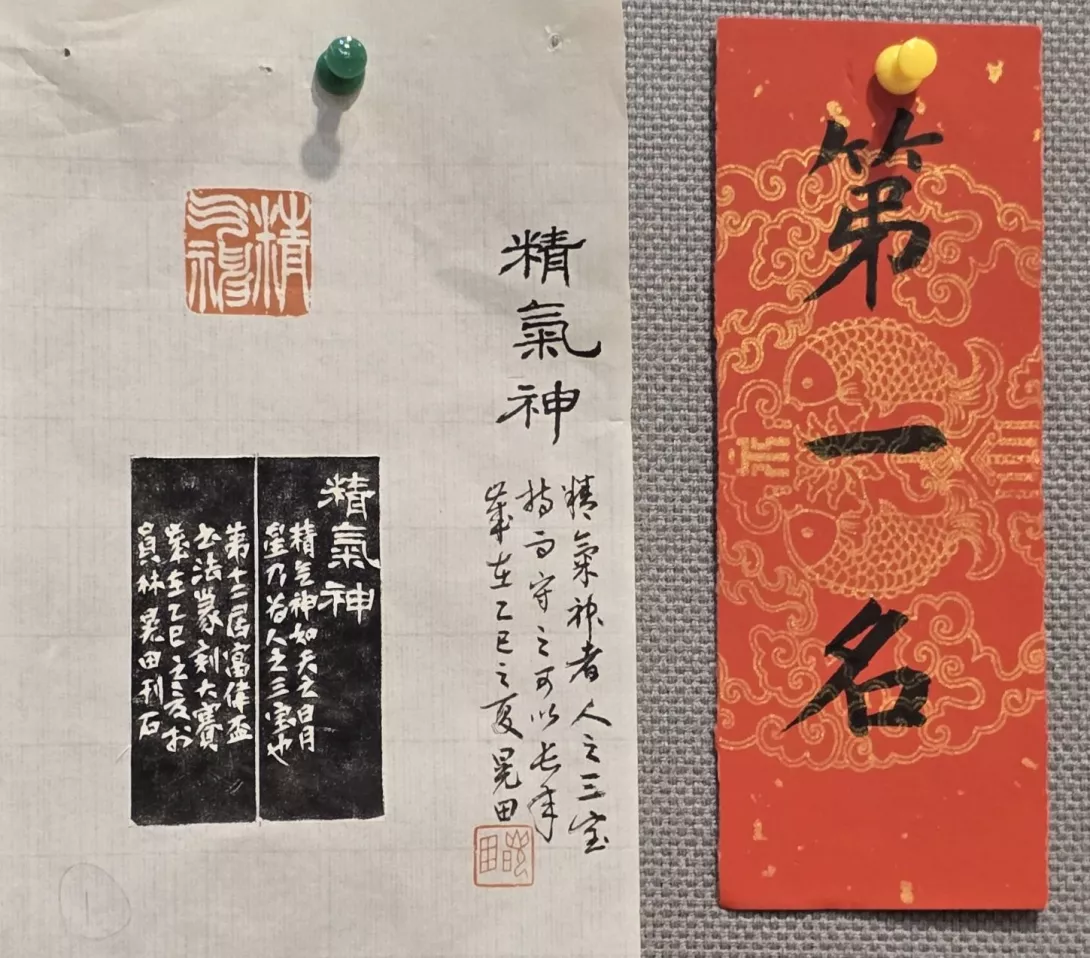 精气神
精氣神
精氣神者人之三宝
持而守之可以长年
歲在乙巳之夏晃田
晃田
精氣神
精气神如天之日月
星乃为人之三宝也
第十二届富偉盃
书法篆刻大賽
歲在乙巳之夏於
員林晃田刊石
1
第一名